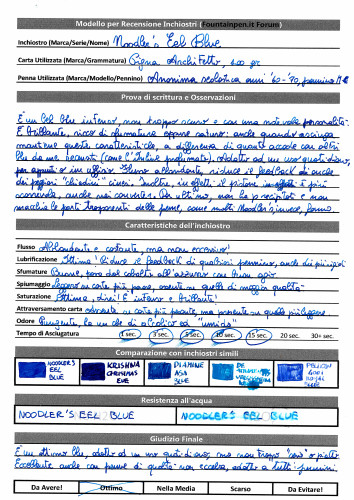 Modello per Recensione Inchiostri (Fountainpen.it Forum)
Inchiostro (Marca/Serie/Nome) Noodler's Eel Blue
Carta Utilizzata (Marca/Grammatura) Pigna Architetto, 100 gr
Penna Utilizzata (Marca/Modello/Pennino) Anonima scolastica anni '60-'70, pennino
Prova di scrittura e Osservazioni
È un bel blu intenso, non troppo scuro e con una notevole personalità.
È brillante, ricco di sfumature eppure naturo: anche quando asciuga
mantiene queste caratteristiche, a differenza di quanto accade con altri
blu da me recensiti (come l'Iulius profumato). Adatto ad un uso quotidiano,
per appunti o in ufficio. Flusso abbondante, riduce il feedback di anche
dei peggiori "chiodini" cinesi. Inoltre, in effetti il pistone è più
scorrevole, anche nei converter. Da ultimo, non ha precipitati e non
macchia le parti trasparenti delle penne, come molti Noodler's invece, fanno.
Caratteristiche dell'inchiostro
Flusso Abbondante e costante, ma non eccessivo!
Lubrificazione Ottima! Riduce il feedback di qualsiasi pennino, anche dei più ispidi
Sfumature Buone, pare dal cobalto all'azzurro con buon agio
Spiumaggio Leggero su carte più pare, assente su quelle di maggior qualità
Saturazione Ottima, direi! È intenso e brillante!
Attraversamento carta su carte più porose, ma presente su quelle più leggere
Odore Pungente, fa un che di alcolico ed "umido"
Tempo di Asciugatura 1 sec. 3 sec. 5 sec. 10 sec. 15 sec. 20 sec. 30+ sec.
Comparazione con inchiostri simili
NOODLER'S EEL BLUE
KRISHNA CHRISTMAS EVE
DIAMINE ASA BLUE
DE ATRAMENTIS
PELIKAN 4001
Resistenza all'acqua
NOODLER'S EEL BLUE NOODLER'S EEL BLUE
Giudizio Finale
È un ottimo blu, adatto ad un uso quotidiano, ma non troppo "serio" o piatto
Eccellente anche con penne di qualità non eccelsa, adatto a tutti i pennini.
Da Avere! Ottimo Nella Media Scarso Da Evitare!